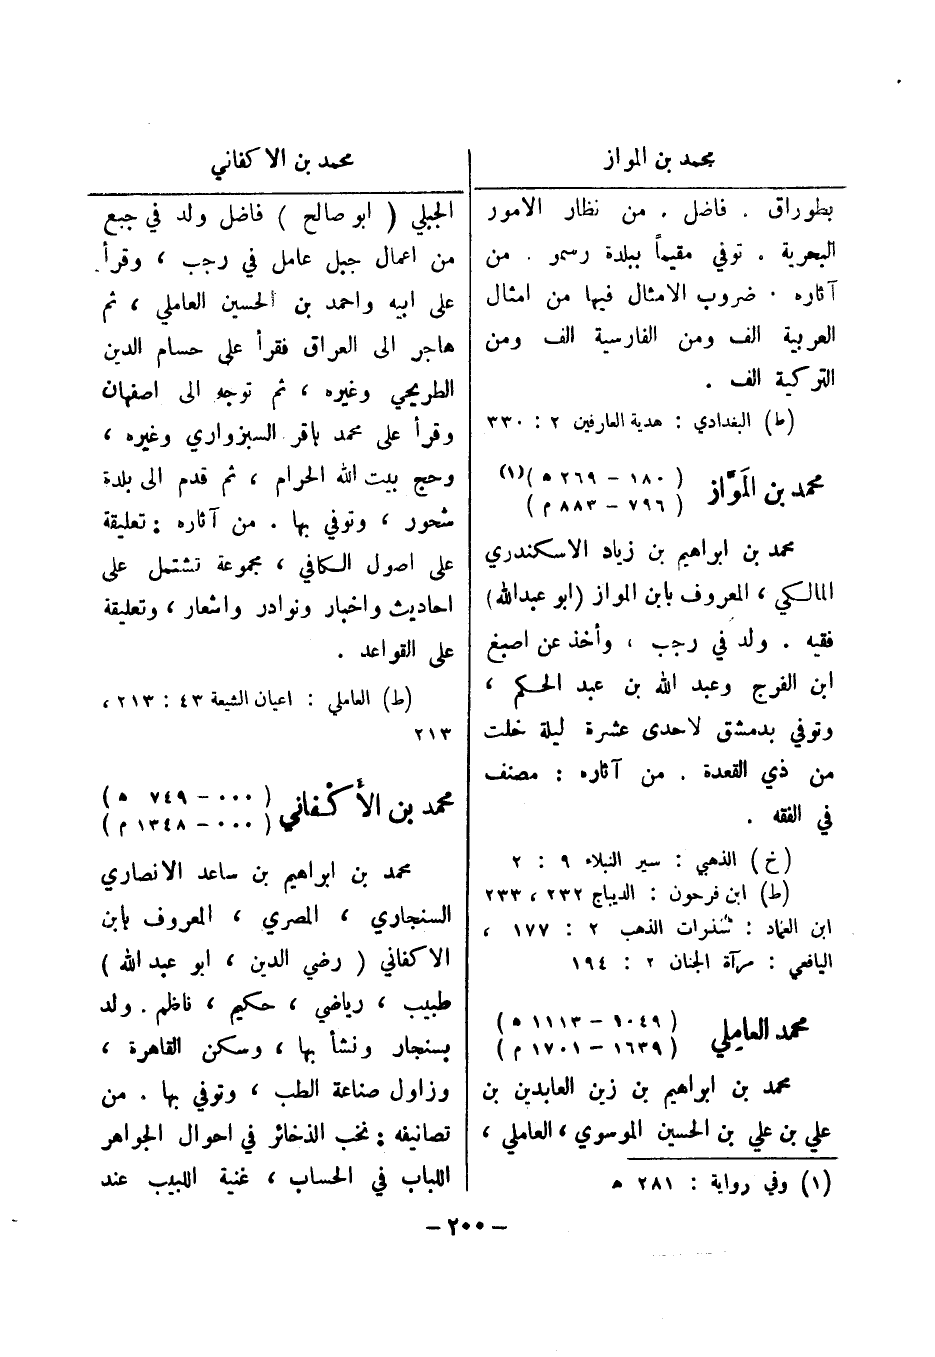 محمد بن المواز
بطوراق . فاضل . من نظار الامور
البحرية . توفي مقيماً ببلدة رسمو . من
آثاره . ضروب الامثال فيها من امثال
العربية الف ومن الفارسية الف ومن
التركية الف .
(ط) البغدادي : هدية العارفين ٢ : ٣٣٠
محمد بن المَوَّاز ( ١٨٠ – ٢٦٩ ه )(١)
( ٧٩٦ – ٨٨٣ م )
محمد بن ابراهيم بن زياد الاسكندري
المالكي ، المعروف بابن المواز (ابو عبدالله)
فقيه . ولد في رجب ، وأخذ عن اصبغ
ابن الفرج وعبد الله بن عبد الحكم ،
وتوفي بدمشق لاحدى عشرة ليلة خلت
من ذي القعدة . من آثاره : مصنف
في الفقه .
(خ) الذهبي : سير النبلاء ٩ : ٢
(ط) ابن فرحون : الديباج ٢٣٢ ، ٢٣٣
ابن العماد : شذرات الذهب ٢ : ١٧٧ ،
اليافعي : مرآة الجنان ٢ : ١٩٤
محمد العامِلي ( ١٠٤٩ – ١١١٣ ه )
( ١٦٣٩ – ١٧٠١ م )
محمد بن ابراهيم بن زين العابدين بن
علي بن علي بن الحسين الموسوي ، العاملي ،
(١) وفي رواية : ٢٨١ ه
محمد بن الاكفاني
الجبلي ( ابو صالح ) فاضل ولد في جبع
من اعمال جبل عامل في رجب ، وقرأ
على ابيه واحمد بن الحسين العاملي ، ثم
هاجر الى العراق فقرأ على حسام الدين
الطريحي وغيره ، ثم توجه الى اصفهان
وقرأ على محمد باقر السبزواري وغيره ،
وحج بيت الله الحرام ، ثم قدم الى بلدة
شحور ، وتوفي بها . من آثاره : تعليقة
على اصول الكافي ، مجموعة تشتمل على
احاديث واخبار ونوادر واشعار ، وتعليقة
على القواعد .
(ط) العاملي : اعيان الشيعة ٤٣ : ٢١٣ ،
٢١٣
محمد بن الأَكْفاني ( ٠٠٠ – ٧٤٩ ه )
( ٠٠٠ – ١٣٤٨ م )
محمد بن ابراهيم بن ساعد الانصاري
السنجاري ، المصري ، المعروف بابن
الاكفاني ( رضي الدين ، ابو عبد الله )
طبيب ، رياضي ، حكيم ، ناظم . ولد
بسنجار ونشأ بها ، وسكن القاهرة ،
وزاول صناعة الطب ، وتوفي بها . من
تصانيفه : نخب الذخائر في احوال الجواهر
اللباب في الحساب ، غنية اللبيب عند
– ٢٠٠ –